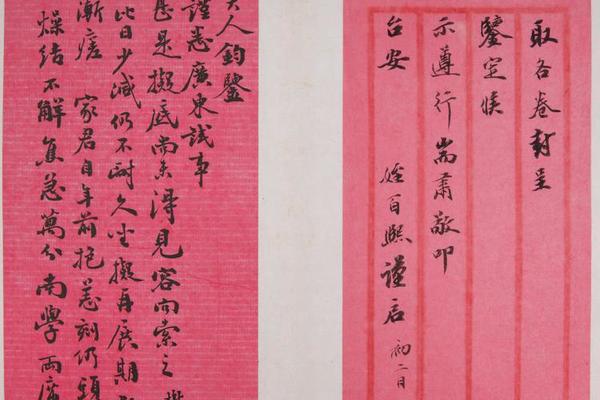 取各卷封呈
鑒定候
示遵行耑肅敬叩
台安 姪百熙謹启 初二日
大人鈞鑒
謹悉廣東試事
甚是擬底尚未得見容向索之
比日少減仍不耐久坐擬再展期
漸瘥 家君自年前抱恙刻仍頭
燥結不解焦急萬分南學兩席